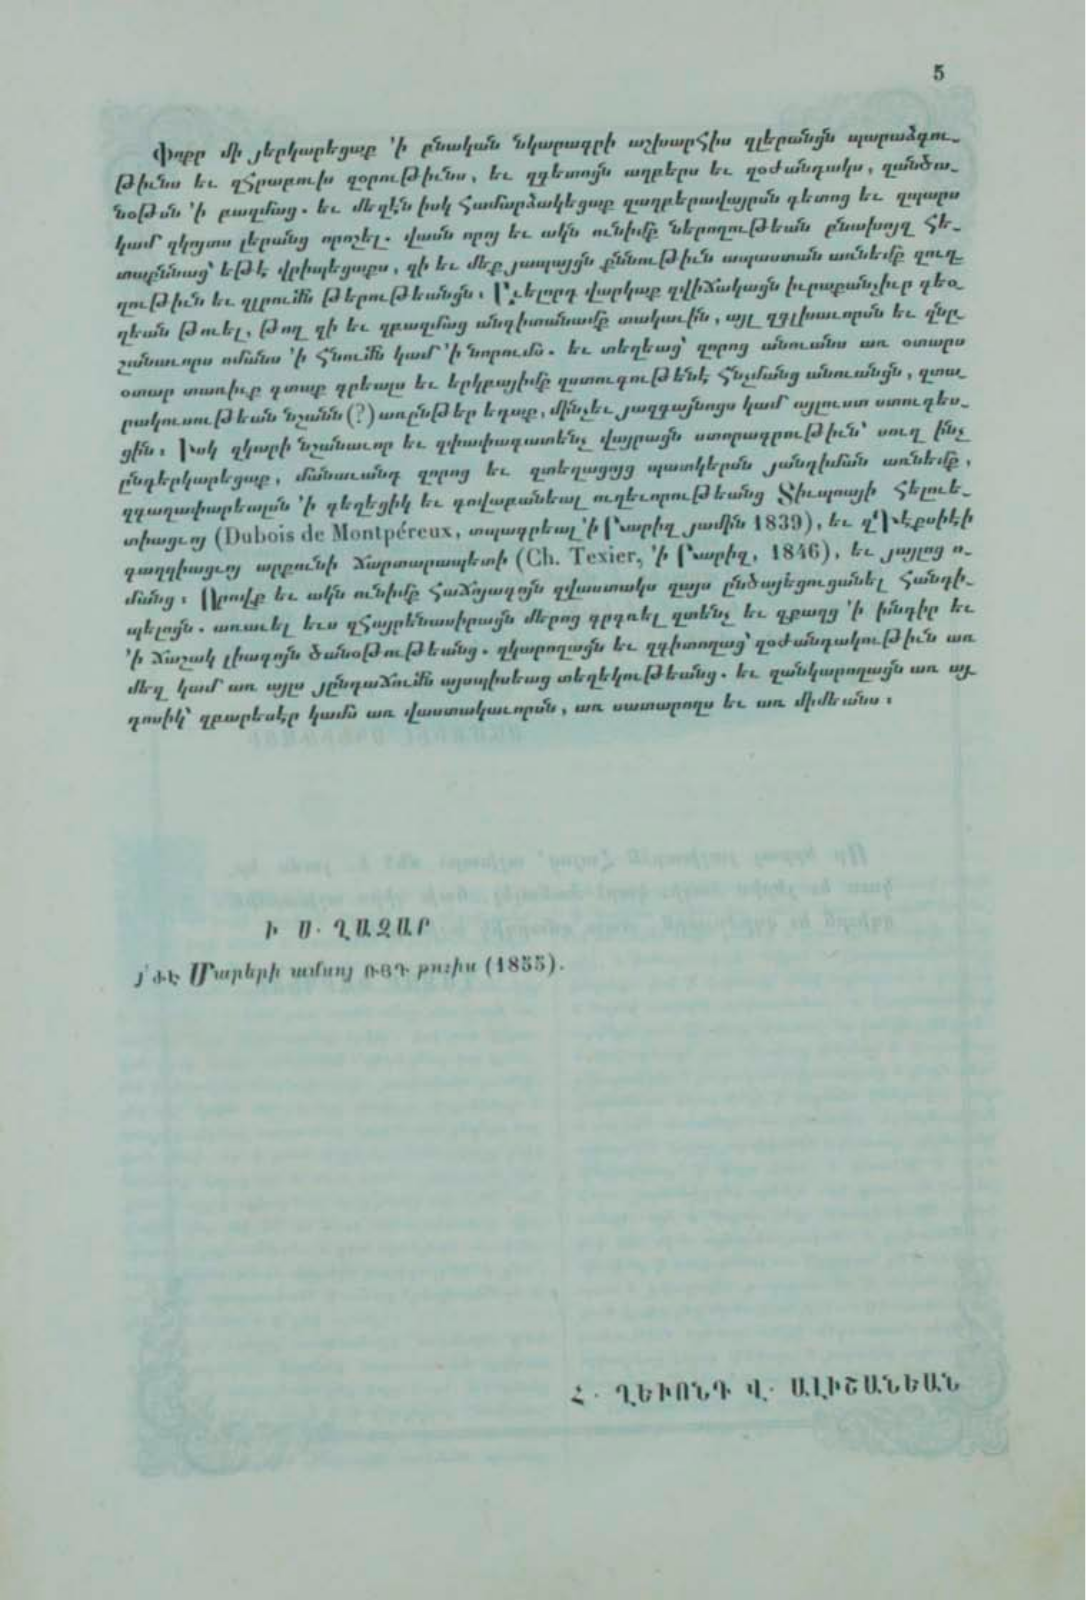 5
Փոքր մի յերկարեցաք ՚ի բնական նկարագրի աշխարհիս զլերանցն պարաձգու-
թիւնս եւ զհրաբուխ զօրութիւնս, եւ զգետոցն աղբերս եւ զօժանդակս, զանծա-
նօթսն ՚ի բազմաց. եւ մեզէն իսկ համարձակեցաք զաղբերավայրսն գետոց եւ զպարս
կամ զկոյտս լերանց որոշել. վասն որոյ եւ ակն ունիմք ներողութեան բնախոյզ հե-
տաքննաց՝ եթէ վրիպեցաքս, զի եւ մեք յապայցն քննութիւն ապաստան առնեմք զուղ-
ղութիւն եւ զլրումն թերութեանցն։ Աւելորդ վարկաք զվիճակացն իւրաքանչիւր գեօ-
ղեան թուել, թող զի եւ զբազմաց անգիտանամք տակաւին, այլ զգլխաւորսն եւ զնը-
շանաւորս ոմանս ՚ի հնումն կամ ՚ի նորումս. եւ տեղեաց՝ զորոց անուանս առ օտարս
օտար տառիւք գտաք գրեալս եւ երկբայիմք զստուգութենէ հնչմանց անուանցն, զտա-
րակուսութեան նշանն (?) առընթեր եդաք, մինչեւ յազգայնոցս կամ այլուստ ստուգես-
ցին։ Իսկ զկարի նշանաւոր եւ զփափագատենչ վայրացն ստորագրութիւն՝ սուղ ինչ
ընդերկարեցաք, մանաւանդ զորոց եւ զտեղացոյց պատկերսն յանդիման առնեմք,
զգաղափարեալսն ՚ի գեղեցիկ եւ գովաբանեալ ուղեւորութեանց Տիւպուայի հելուե-
տիացւոյ (Dubois de Montpéreux, տպագրեալ ՚ի Բարիզ յամին 1839), եւ զԴէքսիէի
գաղղիացւոյ արքունի ճարտարապետի (Ch. Texier, ՚ի Բարիզ, 1846), եւ յայլոց ո-
մանց։ Որովք եւ ակն ունիմք հաճոյագոյն զվաստակս զայս ընծայեցուցանել հանդի-
պելոցն. առաւել եւս զհայրենասիրացն մերոց գրգռել զտենչ եւ զբաղձ ՚ի խնդիր եւ
՚ի ճաշակ լիագոյն ծանօթութեանց. զկարողացն եւ զգիտողաց՝ զօժանդակութիւն առ
մեզ կամ առ այլս յընդաճումն այսպիսեաց տեղեկութեանց. եւ զանկարողացն առ այ-
դոսիկ՝ զբարեսէր կամս առ վաստակաւորսն, առ սատարողս եւ առ միմեանս։
Ի Ս. ՂԱԶԱՐ
յ՛ՖԷ Մարերի ամսոյ ՌՅԴ թուիս (1855).
Հ. ՂԵՒՈՆԴ Վ. ԱԼԻՇԱՆԵԱՆ